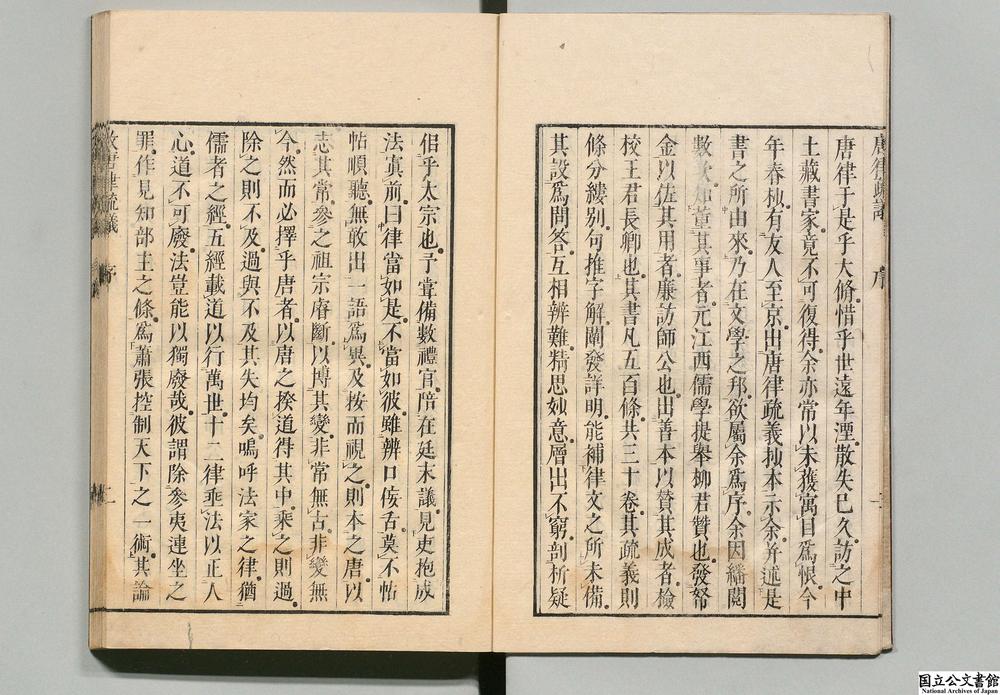 唐律疏議 序
唐律于是乎大脩惜乎世遠年湮散失已久訪之中
土藏書家竟不可復得余亦常以未獲寓目爲恨今
年春杪有友人至京出唐律疏義抄本示余并述是
書之所由來乃在文學之邦欲屬余爲序余因繙閲
數次知董其事者元江西儒學提舉柳君贇也發帑
金以佐其用者廉訪師公也出善本以贊其成者檢
校王君長卿也其書凡五百條共三十卷其疏義則
條分縷別句推字解闡發詳明能補律文之所未備
其設爲問答互相辨難精思妙意層出不窮剖析疑
侶乎太宗也予甞備數禮官陪在廷末議見吏抱成
法寘前曰律當如是不當如彼雖辨口佞舌莫不帖
帖順聽無敢出一語爲異及按而視之則本之唐以
志其常參之祖宗睿斷以博其變非常無古非變無
今然而必擇乎唐者以唐之揆道得其中乘之則過
除之則不及過與不及其失均矣嗚呼法家之律猶
儒者之經五經載道以行萬世十二律乘法以正人
心道不可廢法豈能以獨廢哉彼謂除參夷連坐之
罪作見知部主之條爲蕭張控制天下之一術其論
故唐律疏議 序 二
国立公文書館
National Archives of Japan